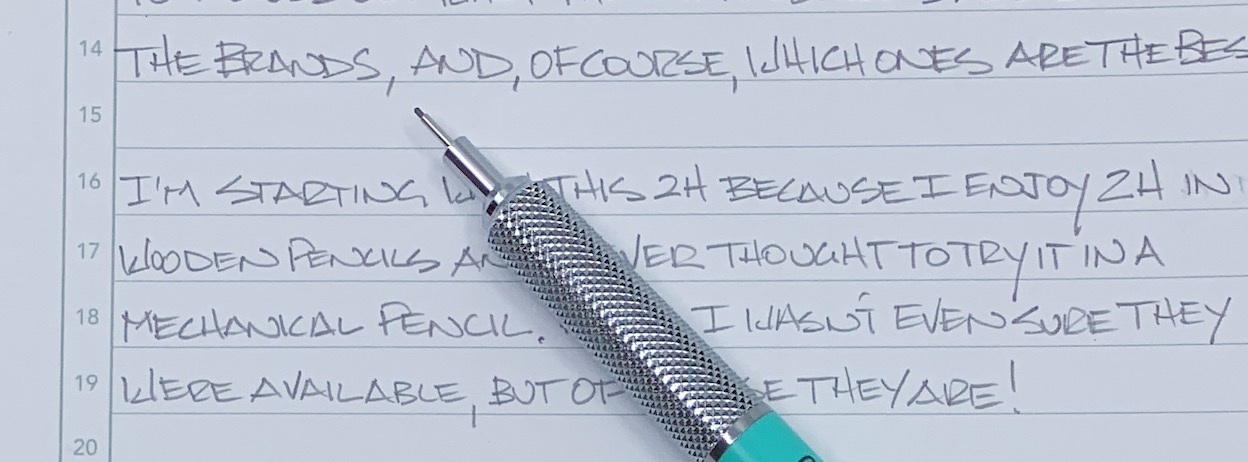 14 THE BRANDS, AND, OF COURSE, WHICH ONES ARE THE BES
15
16 I'M STARTING THIS 2H BECAUSE I ENJOY 2H IN
17 WOODEN PENCILS THOUGHT TO TRY IT IN A
18 MECHANICAL PENCIL. I WASN'T EVEN SURE THEY
19 WERE AVAILABLE, BUT OF THEY ARE!
20